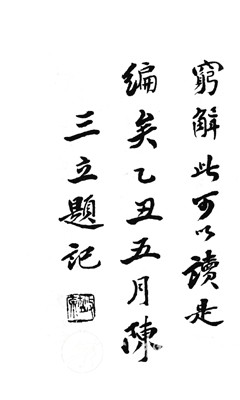 窮解此可以讀是
編矣乙丑五月陳
三立題記